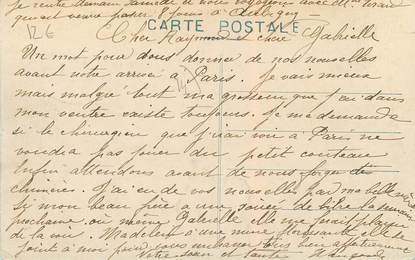 Je rentre demain samedi et nous voyageons avec Mme
qui vient passer à
CARTE POSTALE
126
Cher Raymond & chère Gabrielle
Un mot pour vous donner de nos nouvelles
avant notre arrivée à Paris. Je vais mieux
mais malgré tout ma grosseur que j'ai dans
mon ventre existe toujours. Je me demande
si le chirurgien que j'irai voir à Paris ne
voudra pas jouer du petit couteau
Enfin attendons avant de nous forger des
chimères. J'ai eu de vos nouvelles par ma belle mère
si mon beau père a une soirée de libre la semaine
prochaine ou même Gabrielle elle me ferait plaisir
de la voir. Madeleine a une mine florissante elle se
joint à moi pour vous embrasser tous bien affectueusement
Votre soeur et tante